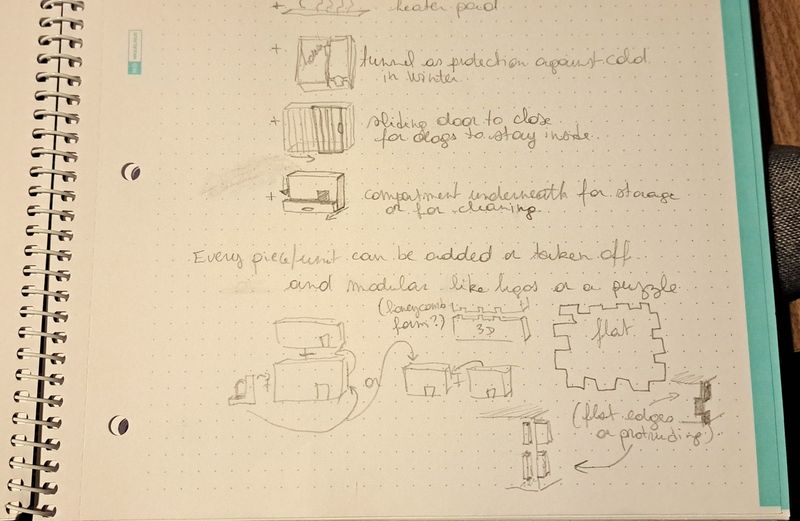 + heater pad
+ tunnel as protection against cold
in winter
+ sliding door to close
for dogs to stay inside
+ compartment underneath for storage
or for cleaning
Every piece/unit can be added or taken off
and modular like legos or a puzzle
(honeycomb
form?)
3D
flat
or
(flat edges
or protruding)